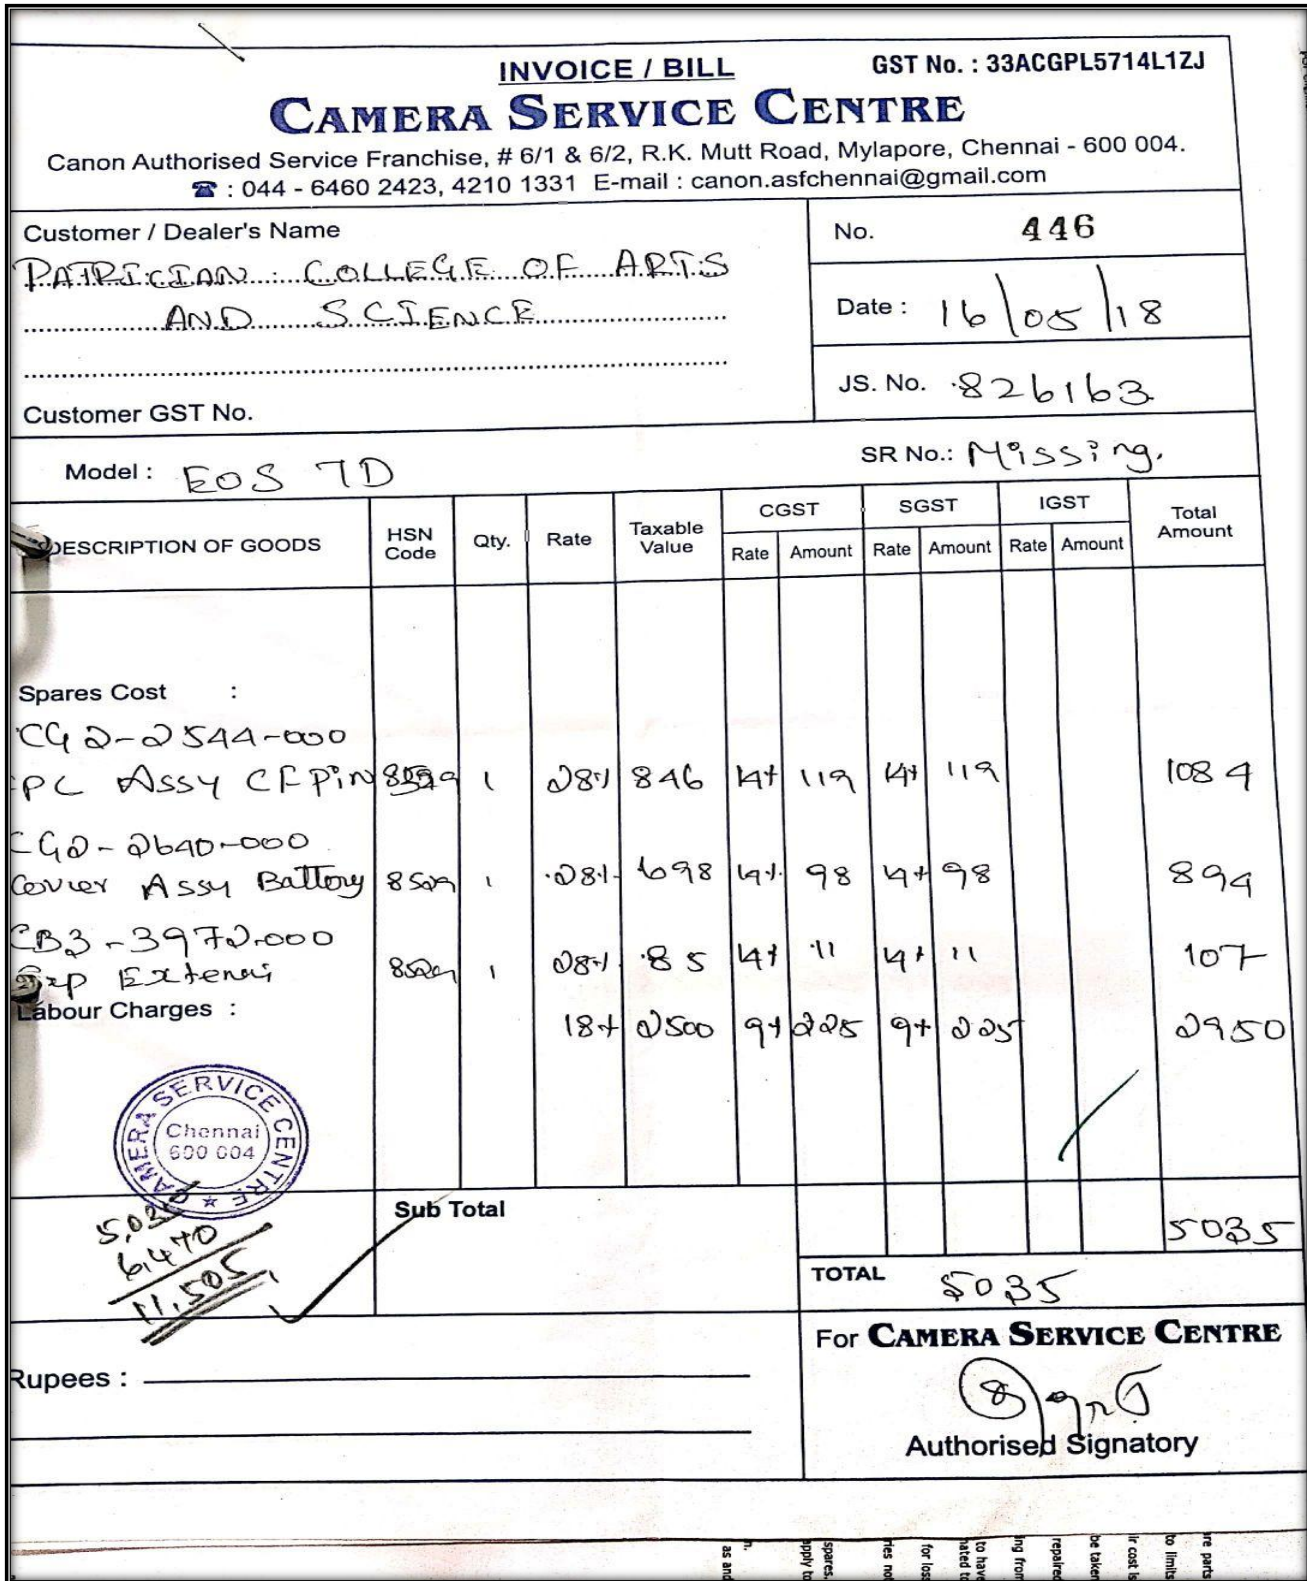 INVOICE / BILL GST No. : 33ACGPL5714L1ZJ
CAMERA SERVICE CENTRE
Canon Authorised Service Franchise, # 6/1 & 6/2, R.K. Mutt Road, Mylapore, Chennai - 600 004.
☎ : 044 - 6460 2423, 4210 1331 E-mail : canon.asfchennai@gmail.com
Customer / Dealer's Name
PATRICIAN COLLEGE OF ARTS
AND SCIENCE
Customer GST No.
No. 446
Date : 16/05/18
JS. No. 826163
Model : EOS 7D SR No.: Missing.
DESCRIPTION OF GOODS HSN Code Qty. Rate Taxable Value CGST SGST IGST Total Amount
Rate Amount Rate Amount Rate Amount
Spares Cost :
CG2-2544-000
PC ASSY CF Pin 8529 1 28% 846 14% 119 14% 119 1084
CG2-2640-000
Cover Assy Battory 8529 1 28% 698 14% 98 14% 98 894
CB3-3972-000
8529 1 28% 85 14% 11 14% 11 107
Labour Charges :
18% 2500 9% 225 9% 225 2950
CAMERA SERVICE CENTRE
Chennai
600 004
Sub Total 5035
6,470
11,505
TOTAL 5035
For CAMERA SERVICE CENTRE
Rupees :
Authorised Signatory